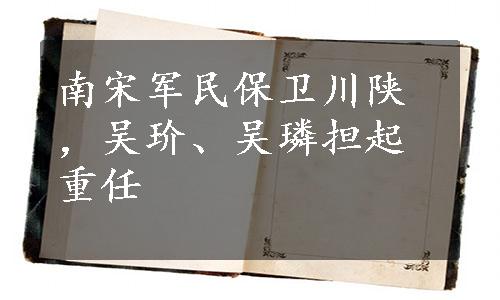 南宋军民保卫川陕
，吴玠、吴璘担起
重任